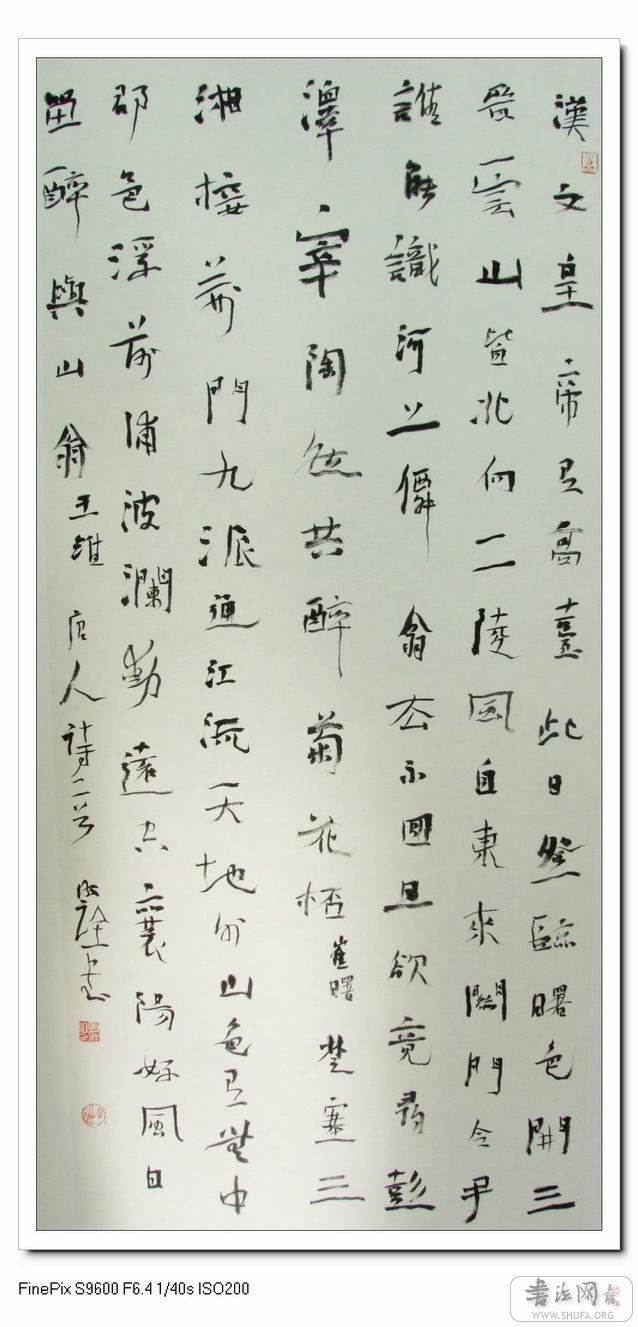 漢文皇帝有高臺此日登臨曙色開三
晉雲山皆北向二陵風自東來關門令尹
誰能識河上僊翁去不回且欲竟尋彭
澤宰陶然共醉菊花杯崔曙楚塞三
湘接荊門九派通江流天地外山色有無中
郡邑浮前浦波瀾動遠空襄陽好風日
留醉與山翁王維唐人詩二首
FinePix S9600 F6.4 1/40s ISO200
书法网
WWW.SHUFA.ORG